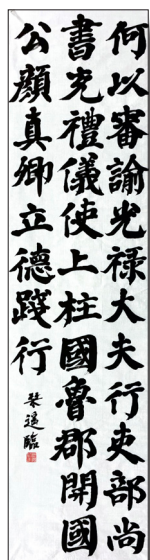 何以審諭光禄大夫行吏部尚
書充禮儀使上柱國魯郡開國
公顔真卿立德踐行
臨